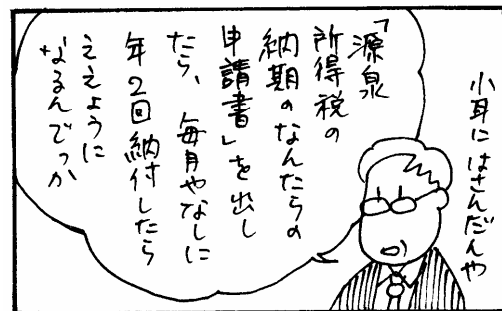 小耳にはさんだんや
「源泉
所得税の
納期のなんたらの
申請書」を出し
たら、毎月やなしに
年2回納付したら
ええように
なるんでっか